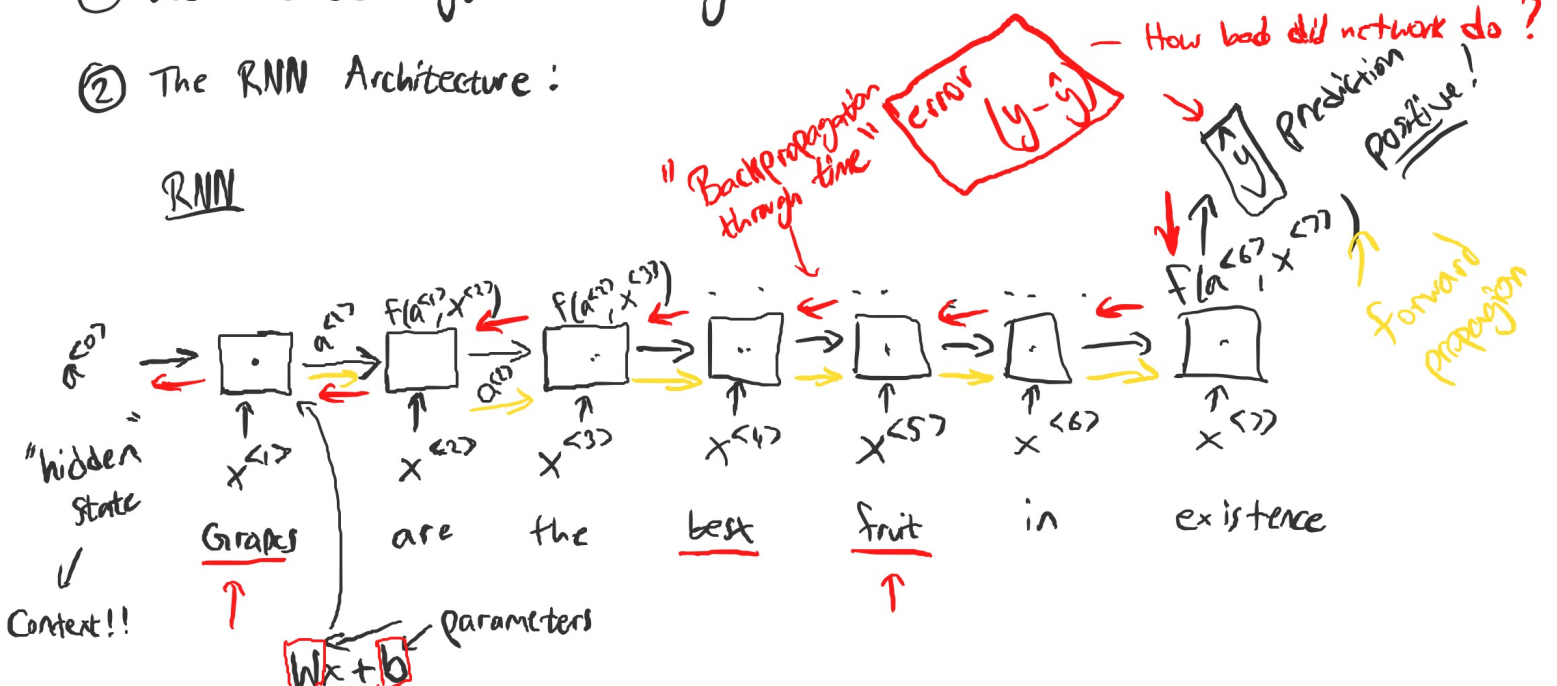 ② The RNN Architecture:
RNN
"Backpropagation
through time"
error (y-ŷ)
— How bad did network do?
ŷ prediction
positive!
a<0>
a<1>
f(a<1>, x<2>)
f(a<2>, x<3>)
f(a<6>, x<7>)
forward
propagion
"hidden"
state
Context!!
x<1> x<2> x<3> x<4> x<5> x<6> x<7>
Grapes are the best fruit in existence
Wx + b
parameters